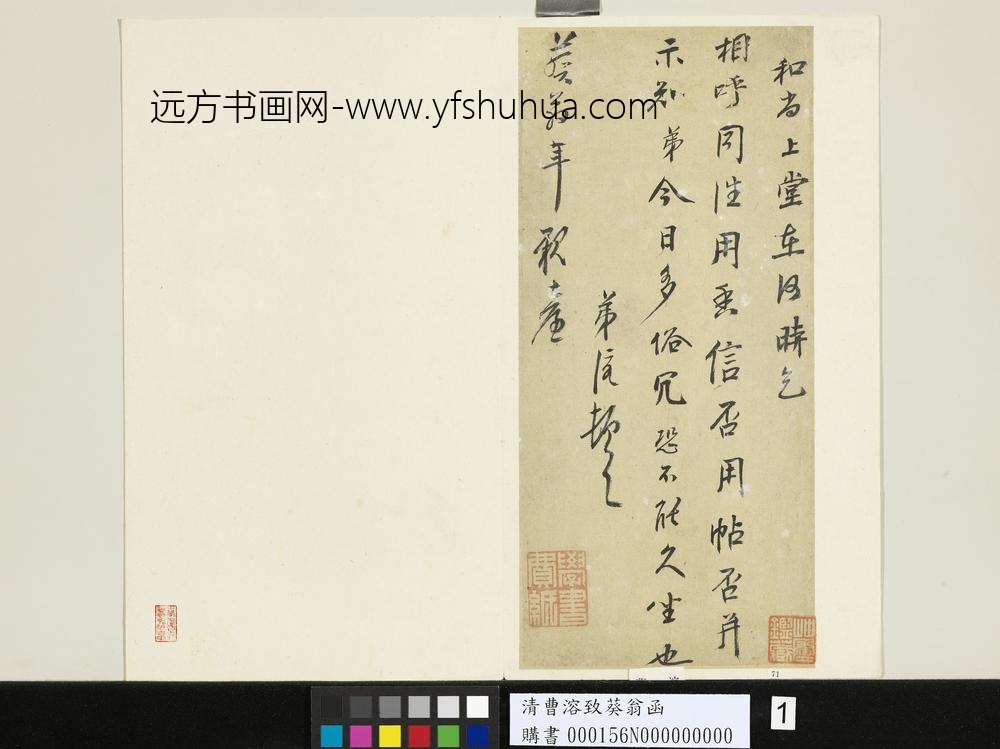 和尚上堂在何時乞
相呼同往用垂信否用帖否并
示知弟今日多俗冗恐不能久坐也
弟溶頓首
葵翁年
臺
學書費紙
远方书画网-www.yfshuhua.com
71
清曹溶致葵翁函
購書 000156N000000000
1